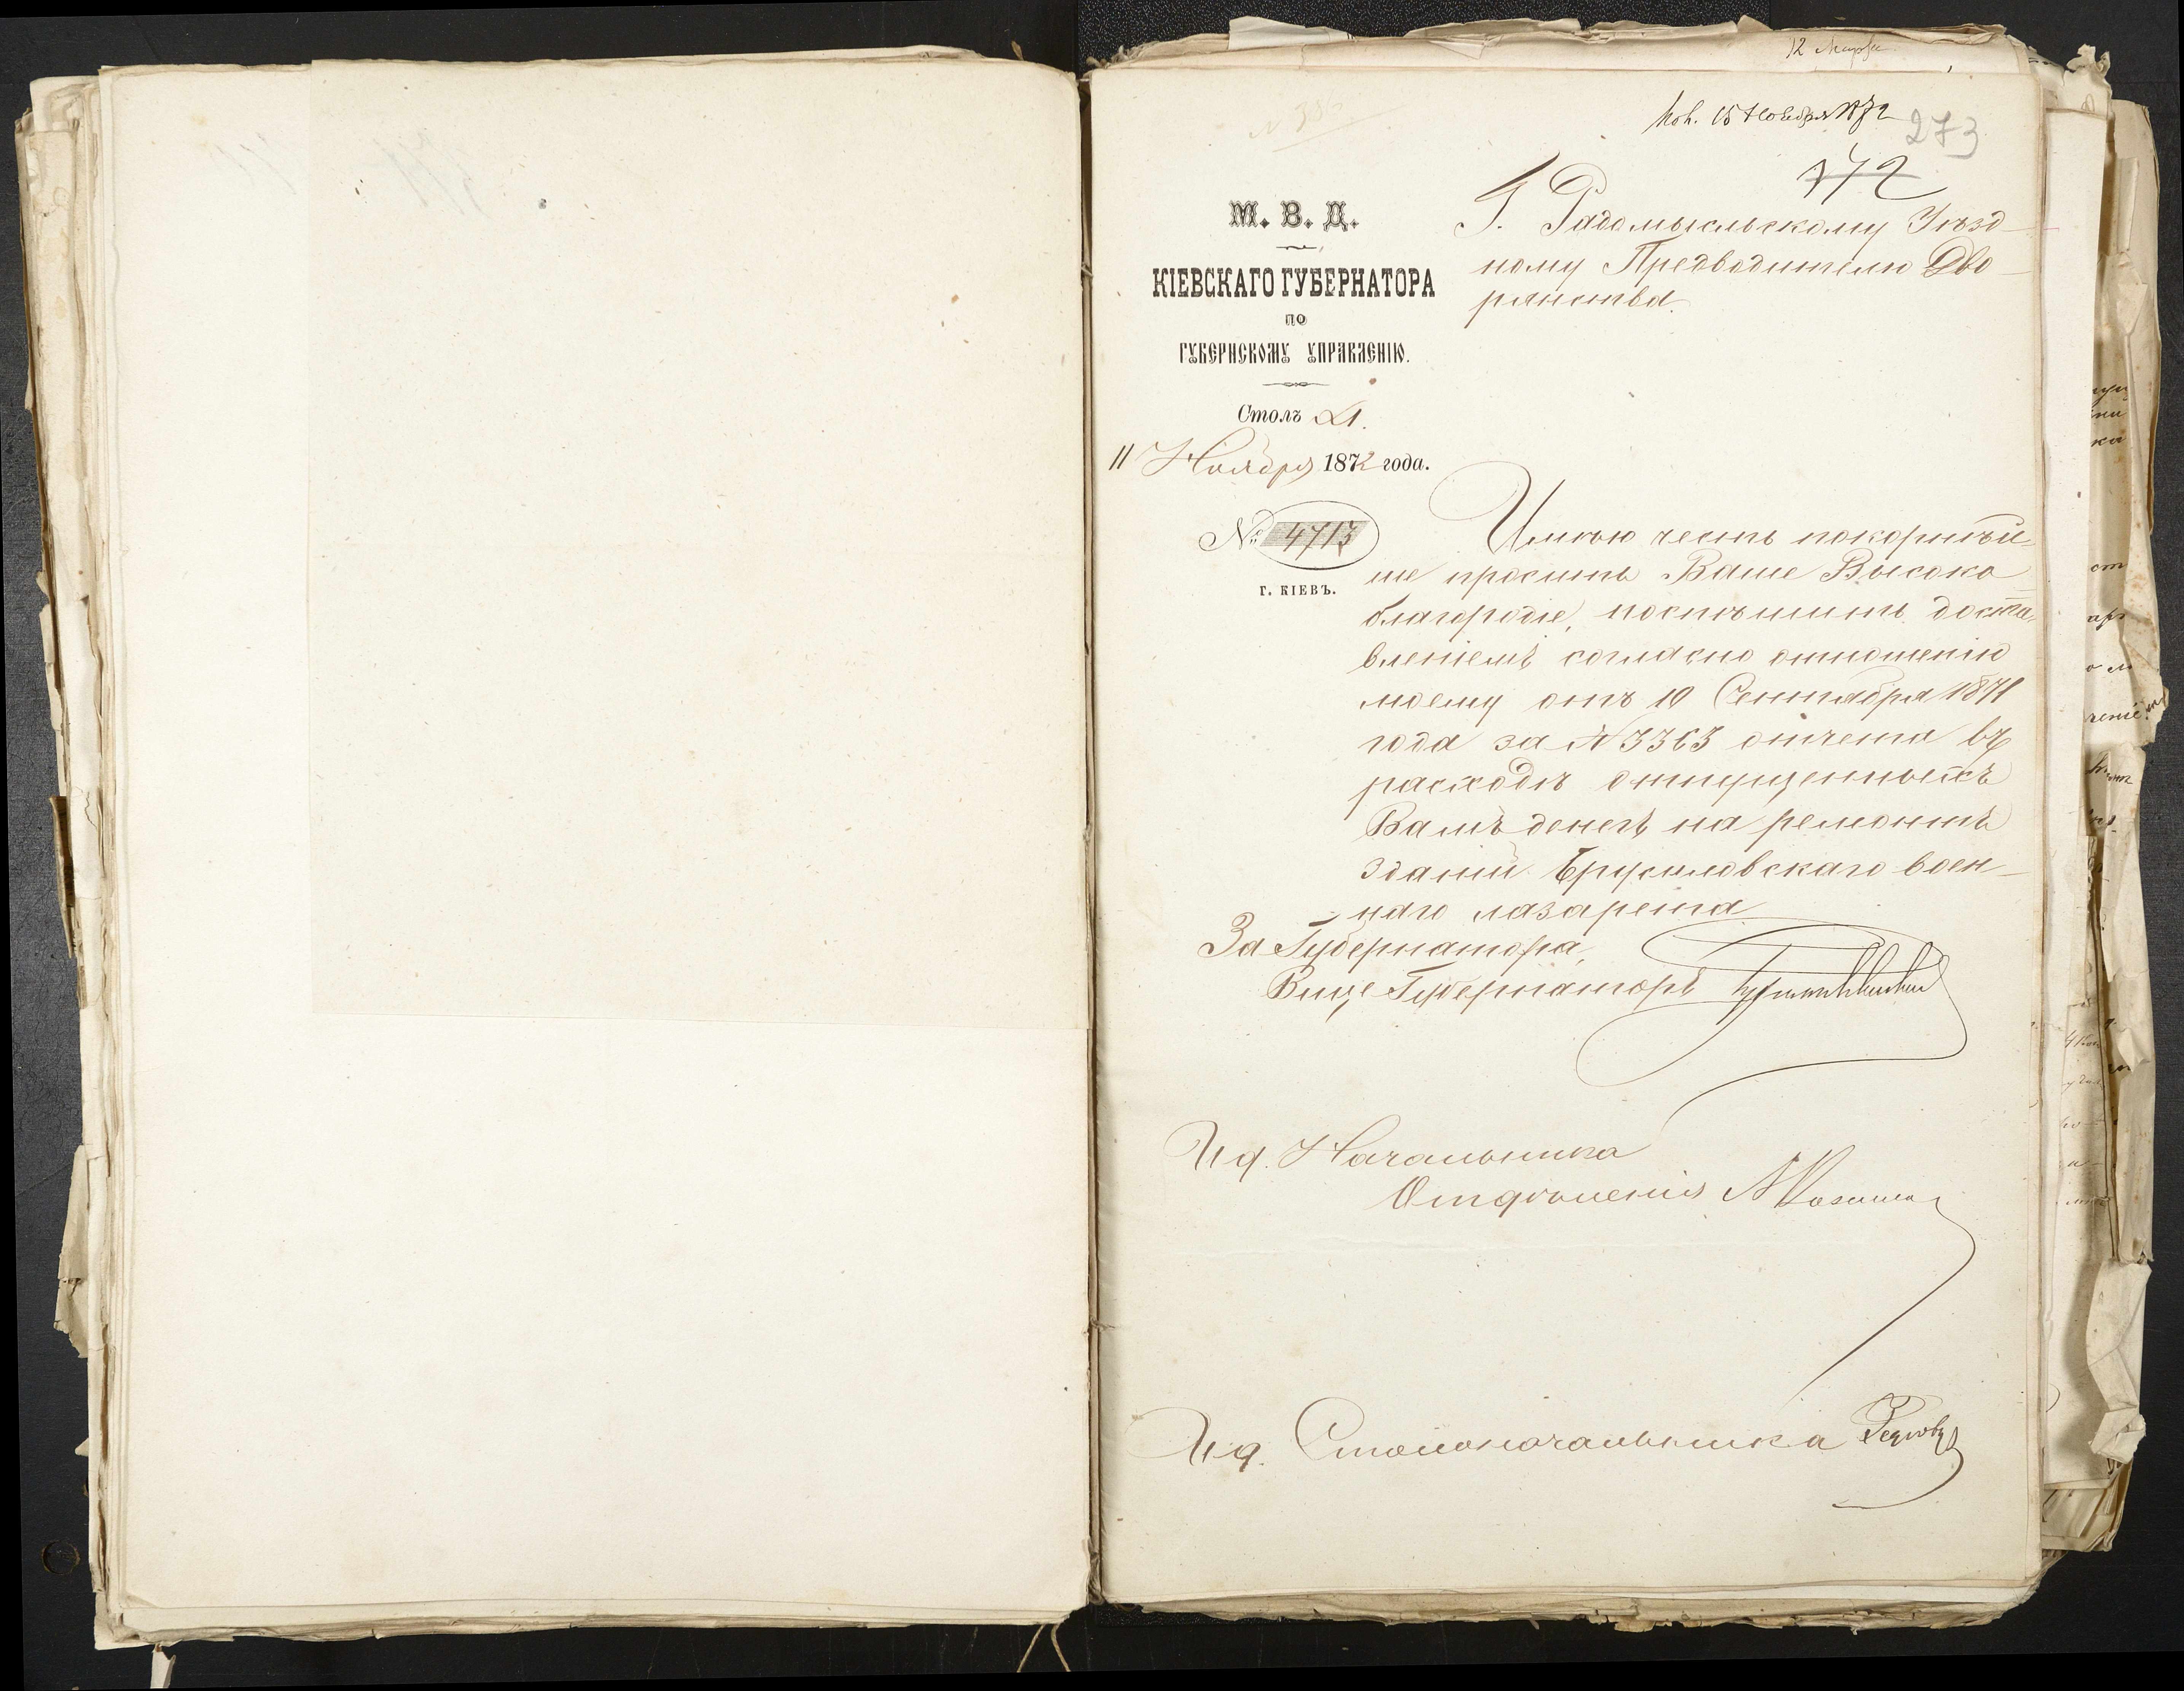 12 Марта
Пол. 15 Ноября 1872
273
772
М. В. Д.
КІЕВСКАГО ГУБЕРНАТОРА
ПО
ГУБЕРНСКОМУ УПРАВЛЕНІЮ.
Столъ 1.
11 Ноября 1872 года.
№ 4713
Г. КІЕВЪ.
Г. Радомысльскому Уѣзд-
ному Предводителю Дво-
рянства.
Имѣю честь покорнѣй-
ше просить Ваше Высоко-
благородіе, поспѣшить доста-
вленіемъ согласно отношенію
моему отъ 10 Сентября 1871
года за № 3363 отчета въ
расходѣ отпущенныхъ
Вамъ денегъ на ремонтъ
зданій Брусиловскаго воен-
наго лазарета
За Губернатора,
Вице Губернаторъ
Ид. Начальника
Отдѣленія
Ид. Столоначальника